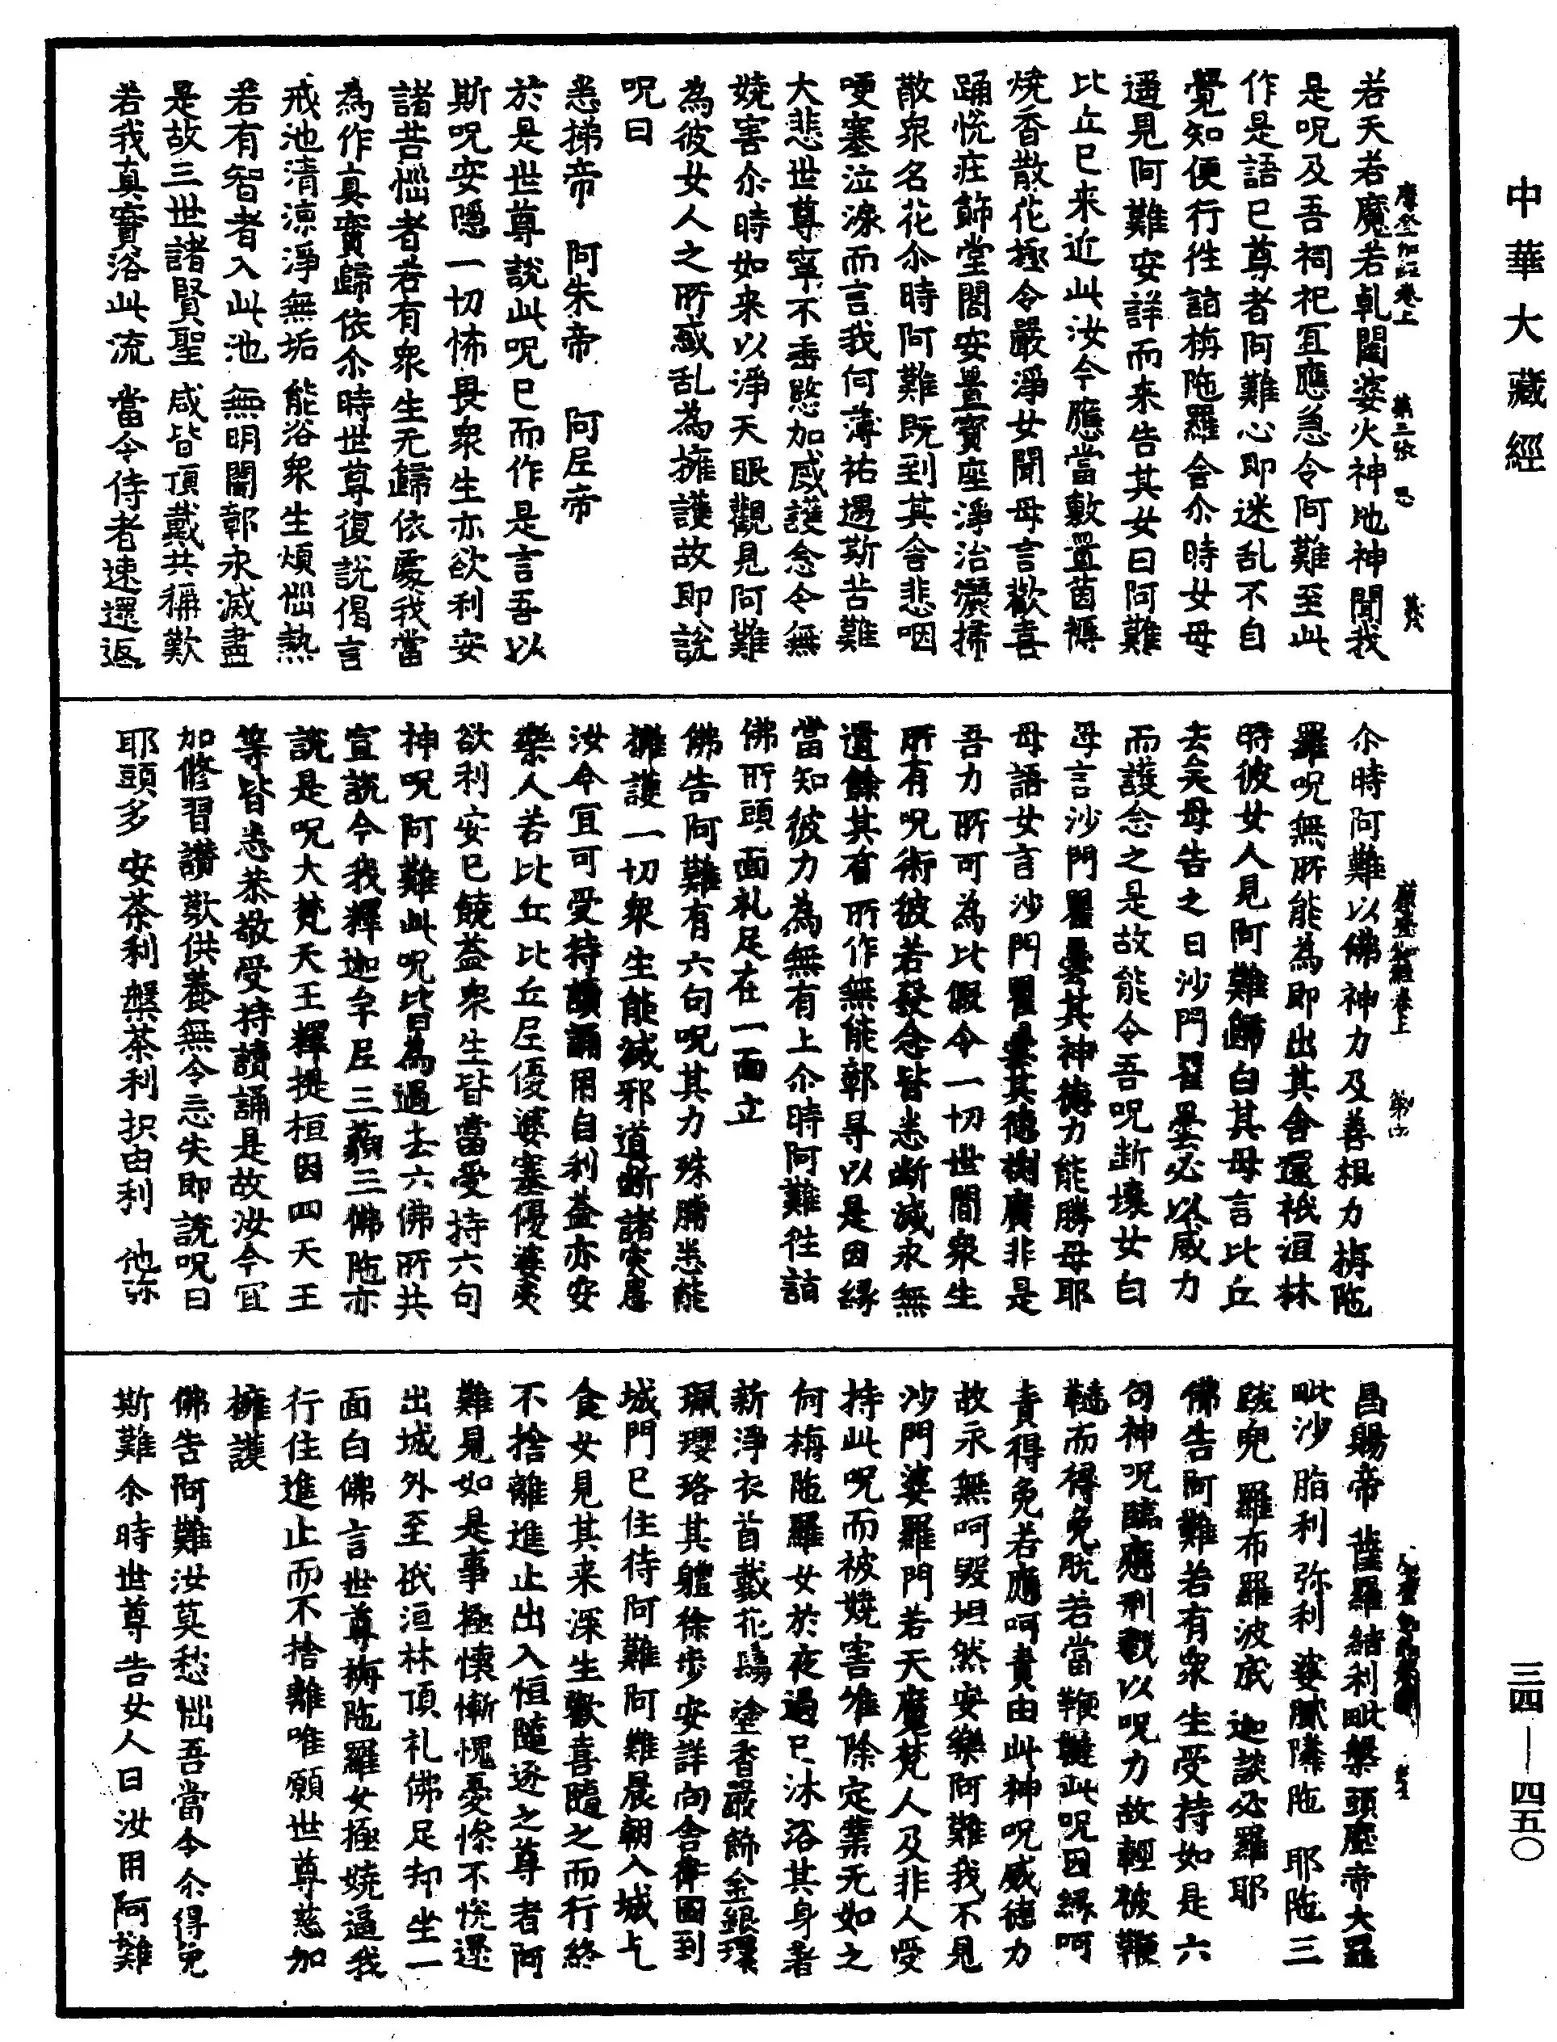 中華大藏經
摩登伽經卷上 第三張 思
若天若魔若乹闥婆火神地神聞我
是呪及吾祠祀冝應急令阿難至此
作是語已尊者阿難心即迷乱不自
覺知便行徃詣栴陁羅舍尒時女母
遥見阿難安詳而来告其女曰阿難
比丘已来近此汝今應當敷置茵褥
燒香散花極令嚴淨女聞母言歡喜
踊恱莊飾堂閣安置寳座淨治灑掃
散衆名花尒時阿難既到其舍悲咽
哽塞泣淚而言我何薄祐遇斯苦難
大悲世尊寧不垂愍加威護念令無
嬈害尒時如来以淨天眼觀見阿難
為彼女人之所惑乱為擁護故即說
呪曰
悉掦帝 阿朱帝 阿𡰱帝
於是世尊說此呪已而作是言吾以
斯呪安隱一切怖畏衆生亦欲利安
諸苦惱者若有衆生无歸依處我當
為作真實歸依尒時世尊復說偈言
戒池清涼淨無垢 能浴衆生煩惱熱
若有智者入此池 無明闇鄣永滅盡
是故三世諸賢聖 咸皆頂戴共稱歎
若我真實浴此流 當令侍者速還返
摩登伽經卷上 第四
尒時阿難以佛神力及善根力栴陁
羅呪無所能為即出其舍還祇洹林
時彼女人見阿難歸白其母言比丘
去矣母告之曰沙門瞿曇必以威力
而護念之是故能令吾呪断壞女白
母言沙門瞿曇其神德力能勝母耶
母語女言沙門瞿曇其德淵廣非是
吾力所可為比假令一切世間衆生
所有呪術彼若發念皆悉断滅永無
遺餘其有所作無能鄣㝵以是因緣
當知彼力為無有上尒時阿難徃詣
佛所頭面礼足在一面立
佛告阿難有六句呪其力殊勝悉能
擁護一切衆生能滅邪道断諸灾患
汝今冝可受持讀誦用自利益亦安
樂人若比丘比丘𡰱優婆塞優婆夷
欲利安已饒益衆生皆當受持六句
神呪阿難此呪皆為過去六佛所共
宣說今我釋迦牟𡰱三藐三佛陁亦
說是呪大梵天王釋提桓因四天王
等皆悉恭敬受持讀誦是故汝今冝
加修習讃歎供養無令忘失即說呪曰
耶頭多 安茶利 盤茶利 抧由利 他弥
曷賜帝 薩羅緒利毗槃頭摩帝大羅
毗沙 脂利 弥利 婆膩隣陁 耶陁三
跋兜 羅布羅波底 迦談必羅耶
佛告阿難若有衆生受持如是六
句神呪臨應刑戮以呪力故輕被鞭
撻而得免脫若當鞭撻此呪因緣呵
責得免若應呵責由此神呪威德力
故永無呵毀坦然安樂阿難我不見
沙門婆羅門若天魔梵人及非人受
持此呪而被嬈害唯除定業无如之
何栴陁羅女於夜過已沐浴其身著
新淨衣首戴花鬘塗香嚴飾金銀環
珮瓔珞其軆徐步安詳向舍衛國到
城門已住待阿難阿難晨朝入城乞
食女見其来深生歡喜隨之而行終
不捨離進止出入恒隨逐之尊者阿
難見如是事極懷慚愧憂惱不恱還
出城外至祇洹林頂礼佛足却坐一
面白佛言世尊栴陁羅女極嬈逼我
行住進止而不捨離唯願世尊慈加
擁護
佛告阿難汝莫愁惱吾當令尒得免
斯難尒時世尊告女人曰汝用阿難
三四—四五〇